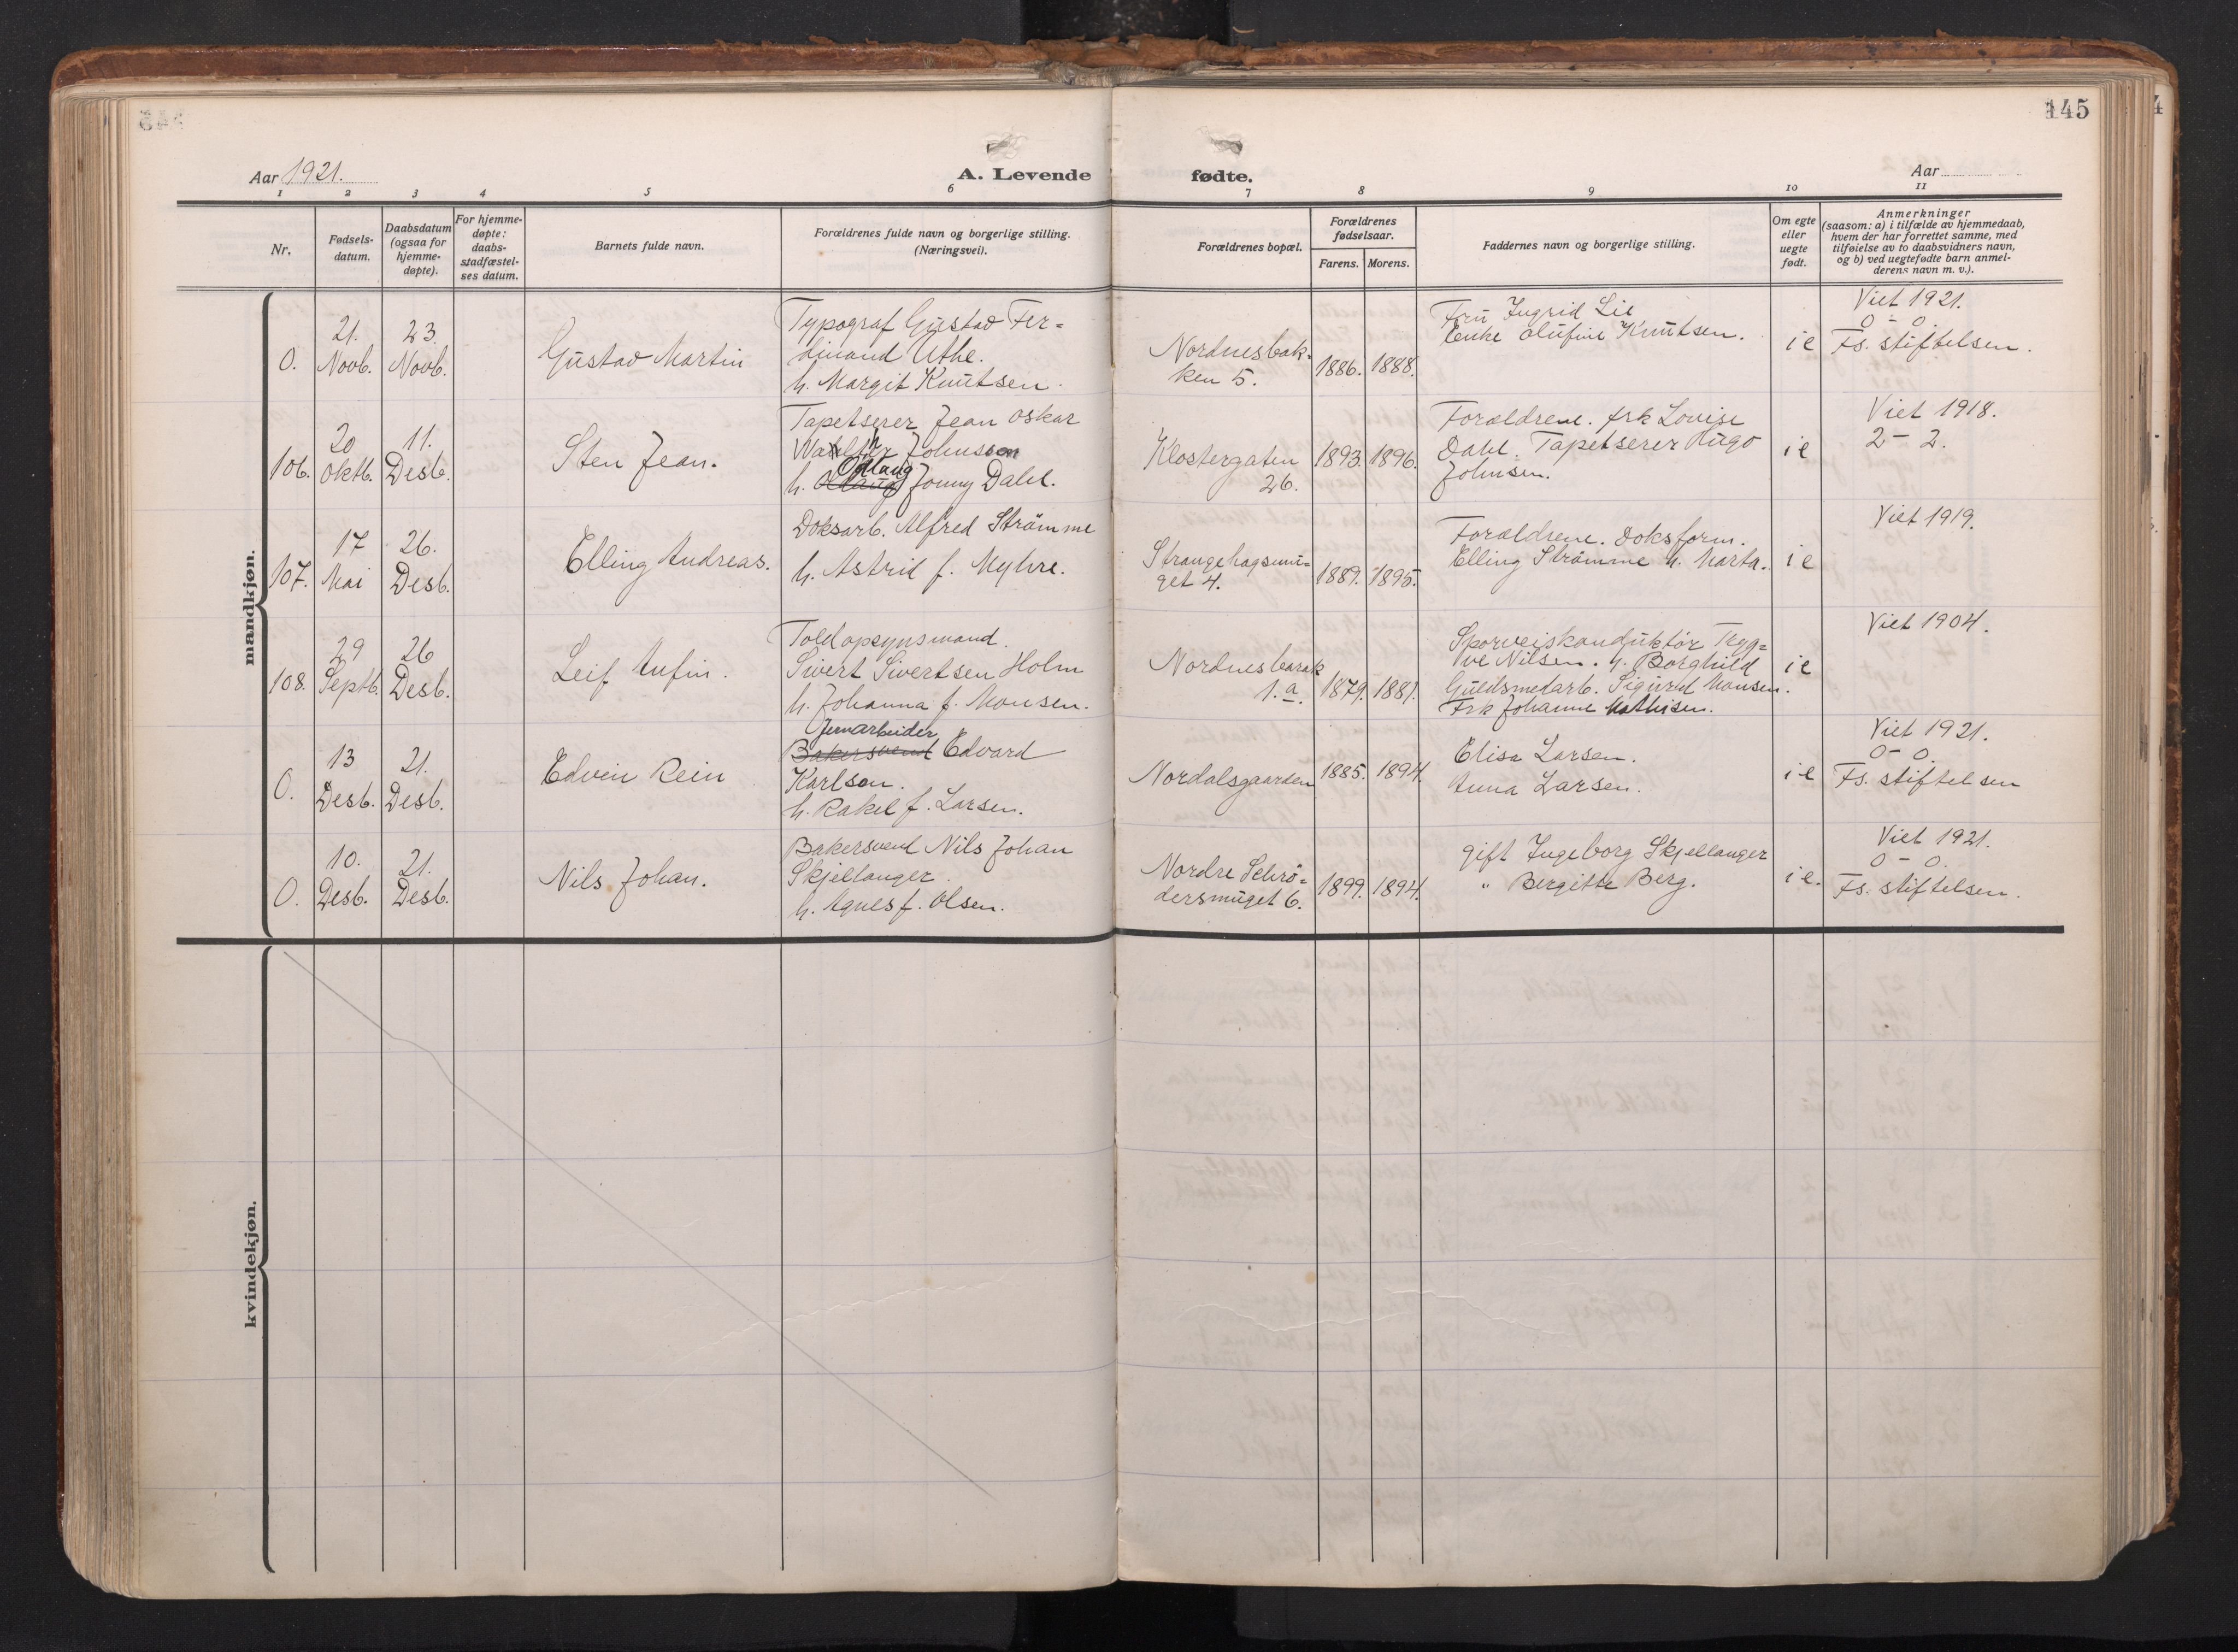 145
Aar 1921.
A. Levende fødte.
Aar
1 2 3 4 5 6 7 8 9 10 11
Nr.
Fødsels-
datum.
Daabsdatum
(ogsaa for
hjemme-
døpte).
For hjemme-
døpte:
daabs-
stadfæstel-
ses datum.
Barnets fulde navn.
Forældrenes fulde navn og borgerlige stilling.
(Næringsvei).
Forældrenes bopæl.
Forældrenes
fødselsaar.
Farens. Morens.
Faddernes navn og borgerlige stilling.
Om egte
eller
uegte
født.
Anmerkninger
(saasom: a) i tilfælde av hjemmedaab,
hvem der har forrettet samme, med
tilføielse av to daabsvidners navn,
og b) ved uegtefødte barn anmel-
derens navn m. v.).
mandkjøn.
0.
21.
Novb.
23.
Novb.
Gustav Martin
Typograf Gustav Fer-
dinand Uthe.
h. Margit Knutsen.
Nordnesbak-
ken 5.
1886. 1888.
Fru Ingrid Lie
Enke Olufine Knutsen.
i e
Viet 1921.
0 - 0.
Fs. stiftelsen.
106.
20
Oktb.
11.
Desb.
Sten Jean.
Tapetserer Jean Oskar
Johnsson
Odlaug
h. Jonny Dahl.
Klostergaten
26.
1893. 1896.
Forældrene. frk Lovise
Dahl. Tapetserer Hugo
Johnsen.
i e
Viet 1918.
2 - 2.
107.
17
Mai
26.
Desb.
Elling Andreas.
Doksarb. Alfred Strømme
h. Astrid f. Myhre.
Strangehagsmu-
get 4.
1889. 1895.
Forældrene. Doksform.
Elling Strømme h. Marta.
i e
Viet 1919.
108.
29
Septb.
26
Desb.
Leif Anfin.
Toldopsynsmand.
Sivert Sivertsen Holm
h. Johanna f. Monsen.
Nordnesbarak
1.a.
1879. 1881.
Sporveiskonduktør Tryg-
ve Nilsen. h. Borghild
Guldsmedarb. Sigurd Monsen.
Frk Johanne Mathisen.
i e
Viet 1904.
0.
13
Desb.
21.
Desb.
Edvin Rein
Jernarbeider
Bakersvend Edvard
Karlsen.
h. Rakel f. Larsen.
Nordalsgaarden
1885. 1894.
Elisa Larsen.
Anna Larsen.
i e
Viet 1921.
0 - 0.
Fs. stiftelsen
0.
10.
Desb.
21.
Desb.
Nils Johan.
Bakersvend Nils Johan
Skjellanger.
h. Agnes f. Olsen.
Nordre Schrø-
dersmuget 6.
1899. 1894.
gift Ingeborg Skjellanger
" Bergitte Berg.
i e.
Viet 1921.
0 - 0.
Fs. stiftelsen.
kvindekjøn.